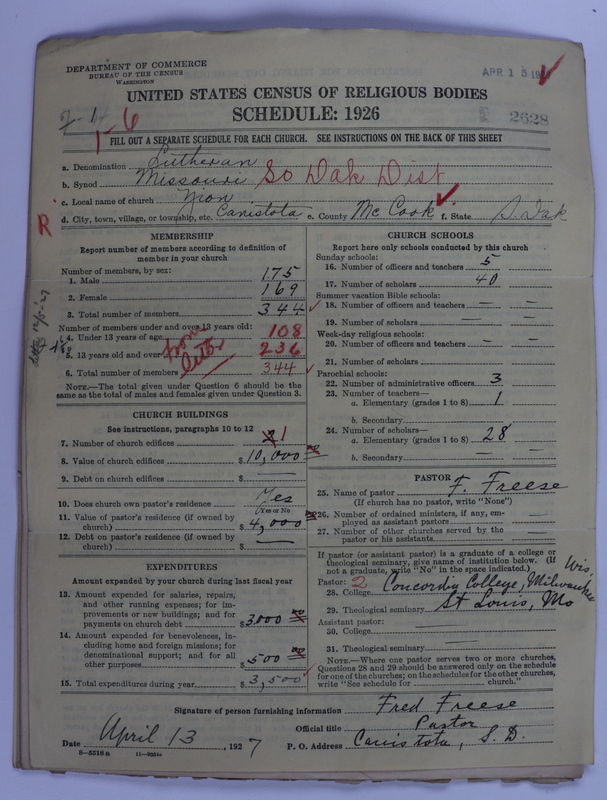 DEPARTMENT OF COMMERCE
BUREAU OF THE CENSUS
WASHINGTON
APR 15
UNITED STATES CENSUS OF RELIGIOUS BODIES
SCHEDULE: 1926
2628
1-6
FILL OUT A SEPARATE SCHEDULE FOR EACH CHURCH. SEE INSTRUCTIONS ON THE BACK OF THIS SHEET
a. Denomination Lutheran
b. Synod Missouri So Dak Dist
c. Local name of church Zion
R
d. City, town, village, or township, etc. Canistota e. County McCook f. State S. Dak
MEMBERSHIP
Report number of members according to definition of member in your church
Number of members, by sex:
1. Male 175
2. Female 169
3. Total number of members 344
Number of members under and over 13 years old:
4. Under 13 years of age 108
5. 13 years old and over 236
from letter
6. Total number of members 344
NOTE.—The total given under Question 6 should be the same as the total of males and females given under Question 3.
CHURCH BUILDINGS
See instructions, paragraphs 10 to 12
7. Number of church edifices 1
8. Value of church edifices $10,000 00
9. Debt on church edifices $ —
10. Does church own pastor's residence Yes
Yes or No
11. Value of pastor's residence (if owned by church) $4,000 00
12. Debt on pastor's residence (if owned by church) $ —
EXPENDITURES
Amount expended by your church during last fiscal year
13. Amount expended for salaries, repairs, and other running expenses; for improvements or new buildings; and for payments on church debt $3,000 00
14. Amount expended for benevolences, including home and foreign missions; for denominational support; and for all other purposes $500 00
15. Total expenditures during year $3,500
CHURCH SCHOOLS
Report here only schools conducted by this church
Sunday schools:
16. Number of officers and teachers 5
17. Number of scholars 40
Summer vacation Bible schools:
18. Number of officers and teachers —
19. Number of scholars —
Week-day religious schools:
20. Number of officers and teachers —
21. Number of scholars —
Parochial schools:
22. Number of administrative officers 3
23. Number of teachers—
a. Elementary (grades 1 to 8) 1
b. Secondary
24. Number of scholars—
a. Elementary (grades 1 to 8) 28
b. Secondary —
PASTOR
25. Name of pastor F. Freese
(If church has no pastor, write "None")
26. Number of ordained ministers, if any, employed as assistant pastors —
27. Number of other churches served by the pastor or his assistants —
If pastor (or assistant pastor) is a graduate of a college or theological seminary, give name of institution below. (If not a graduate, write "No" in the space indicated.)
Pastor: 2
28. College Concordia College, Milwaukee Wis,
29. Theological seminary St Louis, Mo
Assistant pastor:
30. College
31. Theological seminary —
NOTE.—Where one pastor serves two or more churches, Questions 28 and 29 should be answered only on the schedule for one of the churches; on the schedules for the other churches, write "See schedule for ____ church."
Signature of person furnishing information Fred Freese
Official title Pastor
Date April 13, 1927 P. O. Address Canistota, S. D.
8-5518a